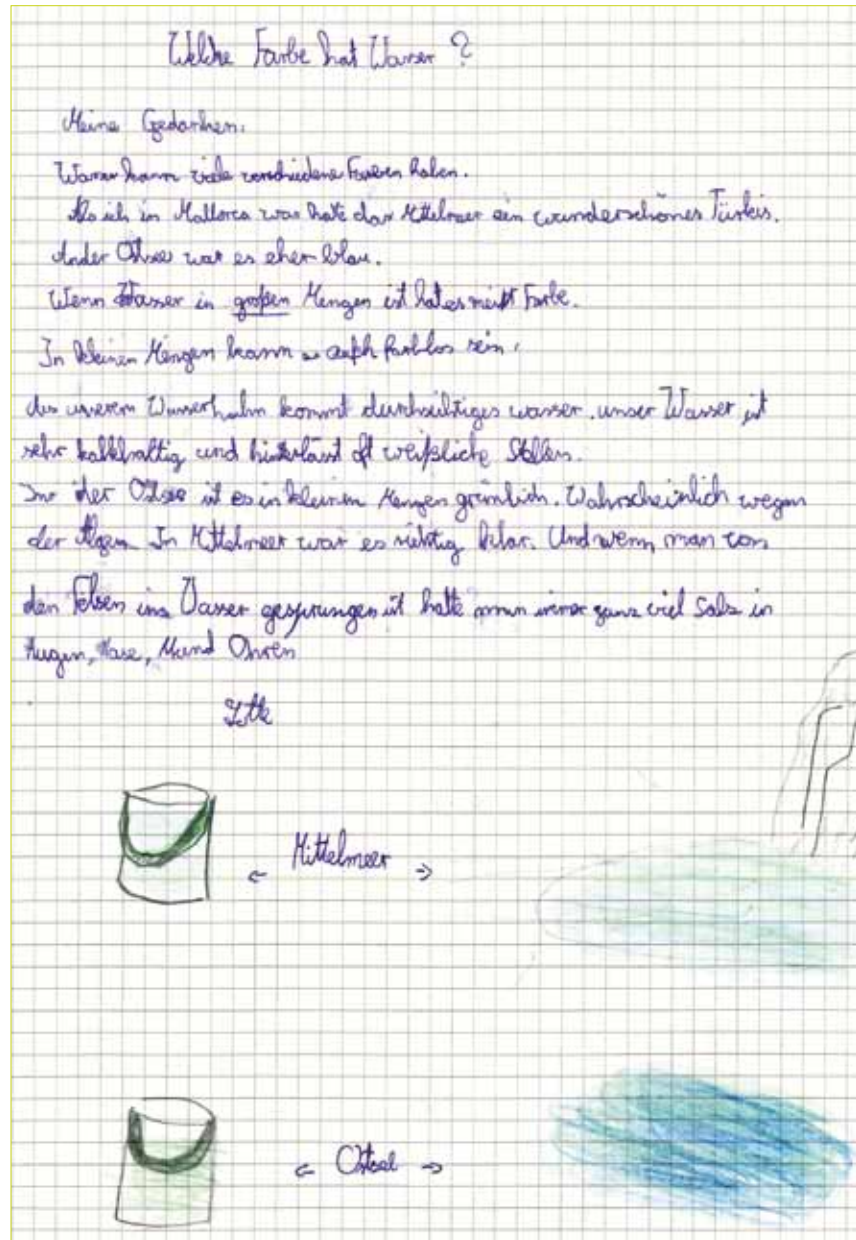 Welche Farbe hat Wasser ?
Meine Gedanken:
Wasser kann viele verschiedene Farben haben.
Als ich in Mallorca war hate das Mittelmeer ein wunderschönes Türkis.
Ander Ostsee war es eher blau.
Wenn Wasser in großen Mengen ist hat es meist Farbe.
In kleinen Mengen kann es auch farblos sein.
Aus unserem Wasserhahn kommt durchsichtiges wasser. unser Wasser ist
sehr kalkhaltig und hinterlässt oft weißliche Stellen.
In der Ostsee ist es in kleinen Mengen grünlich. Wahrscheinlich wegen
der Algen. In Mittelmeer war es richtig klar. Und wenn man von
den Felsen ins Wasser gesprungen ist hatte man immer ganz viel Salz in
Augen, Nase, Mund Ohren
← Mittelmeer →
← Ostsee →